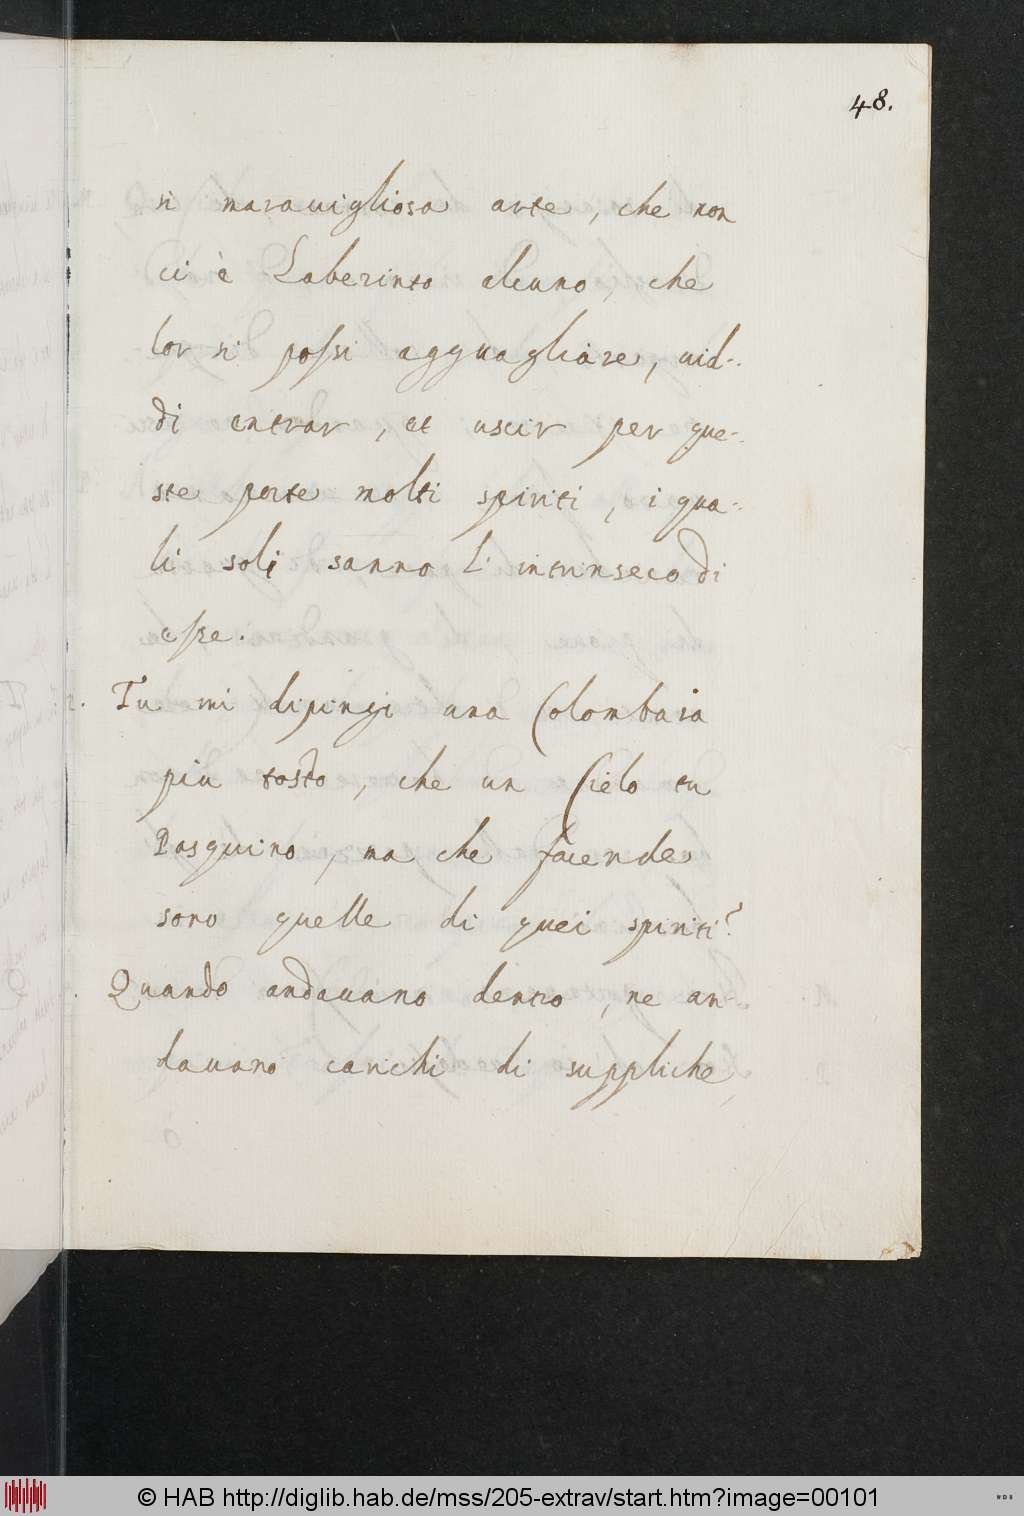 48.
si marauigliosa arte, che non
ci è Laberinto alcuno, che
lor si possi agguagliare, uid-
di entrar, et uscir per que-
ste porte molti spiriti, i qua-
li soli sanno l'intrinseco di
esse.
Tu mi dipingi una Colombaia
piu tosto, che un Cielo tu
Pasquino, ma che facende
sono quelle di quei spiriti?
Quando andauano dentro, ne an-
dauano carichi di suppliche,
© HAB http://diglib.hab.de/mss/205-extrav/start.htm?image=00101